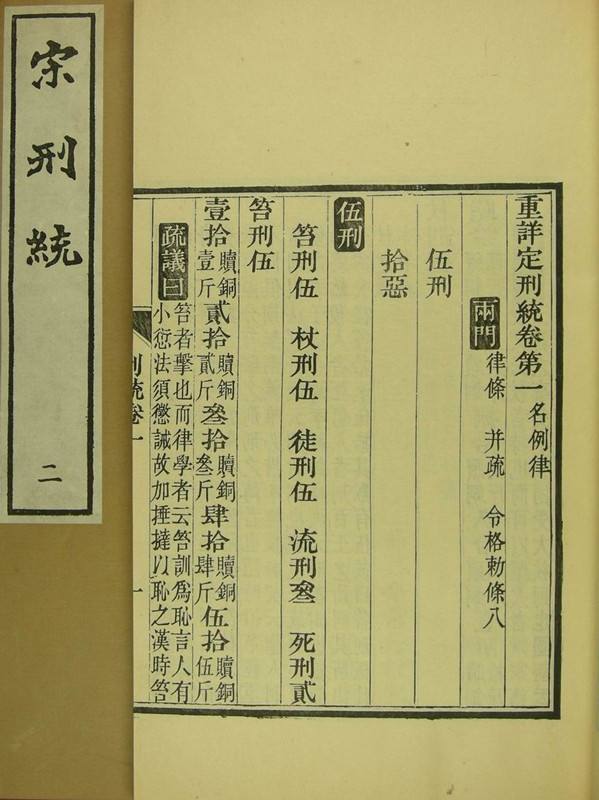 宋刑統
二
重詳定刑統卷第一 名例律
兩門 律條 并疏 令格勅條八
伍刑
拾惡
伍刑
笞刑伍 杖刑伍 徒刑伍 流刑叁 死刑貳
笞刑伍
壹拾贖銅壹斤貳拾贖銅貳斤叁拾贖銅叁斤肆拾贖銅肆斤伍拾贖銅伍斤
疏議曰笞者擊也而律學者云笞訓爲恥言人有
小愆法須懲誡故加捶撻以恥之漢時笞
刑統卷一
一